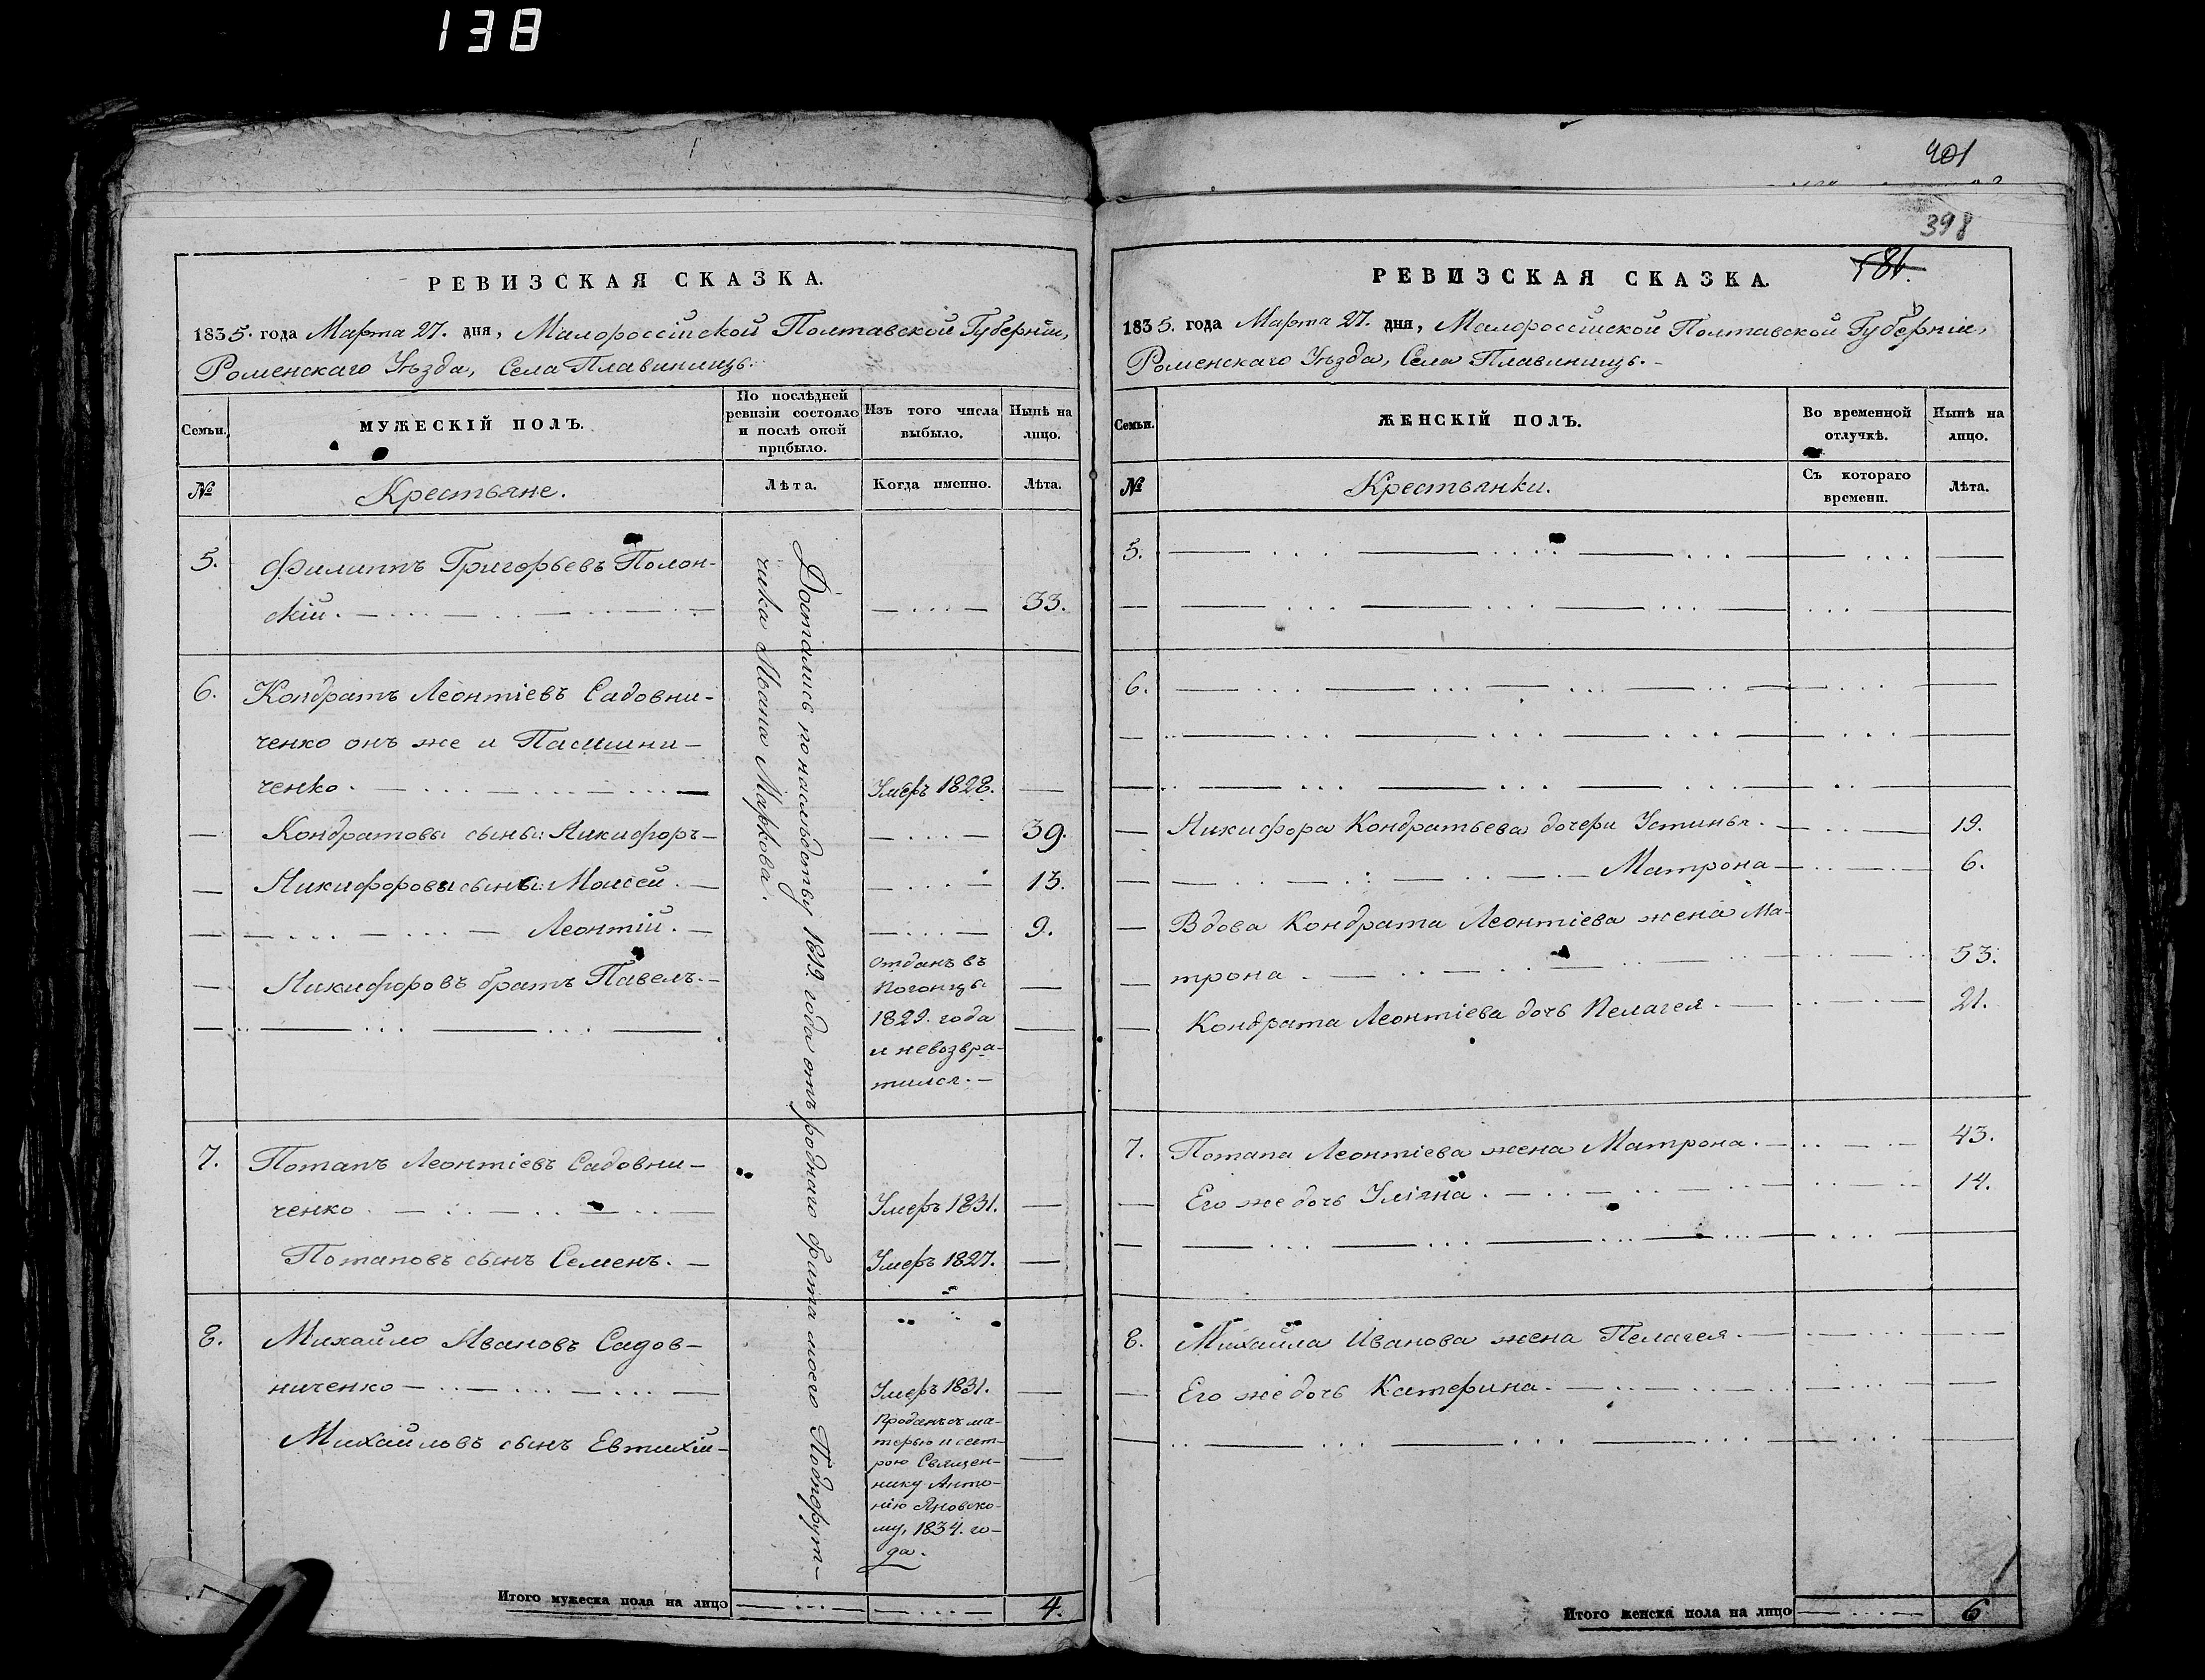 138
РЕВИЗСКАЯ СКАЗКА.
1835. года Марта 27. дня, Малороссійской Полтавской Губерніи,
Роменскаго Уѣзда, Села Плавинищъ.
Семьи.
МУЖЕСКІЙ ПОЛЪ.
По послѣдней
ревизіи состояло
и послѣ оной
прибыло.
Изъ того числа
выбыло.
Нынѣ на
лицо.
№
Крестьяне.
Лѣта.
Когда именно.
Лѣта.
5. Филиппъ Григорьевъ Полон-
скій. 33.
6. Кондратъ Леонтіевъ Садовни-
ченко онъ же и Пасишни-
ченко. Умеръ 1828.
Кондратовы сыны: Никифоръ 39.
Никифоровы сыны: Моисей. 13.
Леонтій. 9.
Никифоровъ братъ Павелъ.
отданъ въ
погонцы
1829. года
и невозвра-
тился.
7. Потапъ Леонтіевъ Садовни-
ченко. Умеръ 1831.
Потаповъ сынъ Семенъ. Умеръ 1827.
8. Михайло Ивановъ Садов-
ниченко Умеръ 1831.
Михайловъ сынъ Евтихій
Проданъ съ ма-
терью и сест-
рою Священ-
нику Анто-
нію Яновско-
му, 1834. го-
да.
Достались по наслѣдству 1819. года отъ роднаго брата моего Подпорут-
чика Ивана Маркова.
Итого мужеска пола на лицо 4.
401
398
РЕВИЗСКАЯ СКАЗКА.
1835. года Марта 27. дня, Малороссійской Полтавской Губерніи,
Роменскаго Уѣзда, Села Плавинищъ.
Семьи.
ЖЕНСКІЙ ПОЛЪ.
Во временной
отлучкѣ.
Нынѣ на
лицо.
№
Крестьянки.
Съ котораго
времени.
Лѣта.
5.
6.
Никифора Кондратьева дочери Устинья. 19.
Матрона 6.
Вдова Кондрата Леонтіева жена Ма-
трона. 53.
Кондрата Леонтіева дочь Пелагея. 21.
7. Потапа Леонтіева жена Матрона. 43.
Его же дочь Уліяна. 14.
8. Михайла Иванова жена Пелагея.
Его же дочь Катерина.
Итого женска пола на лицо 6